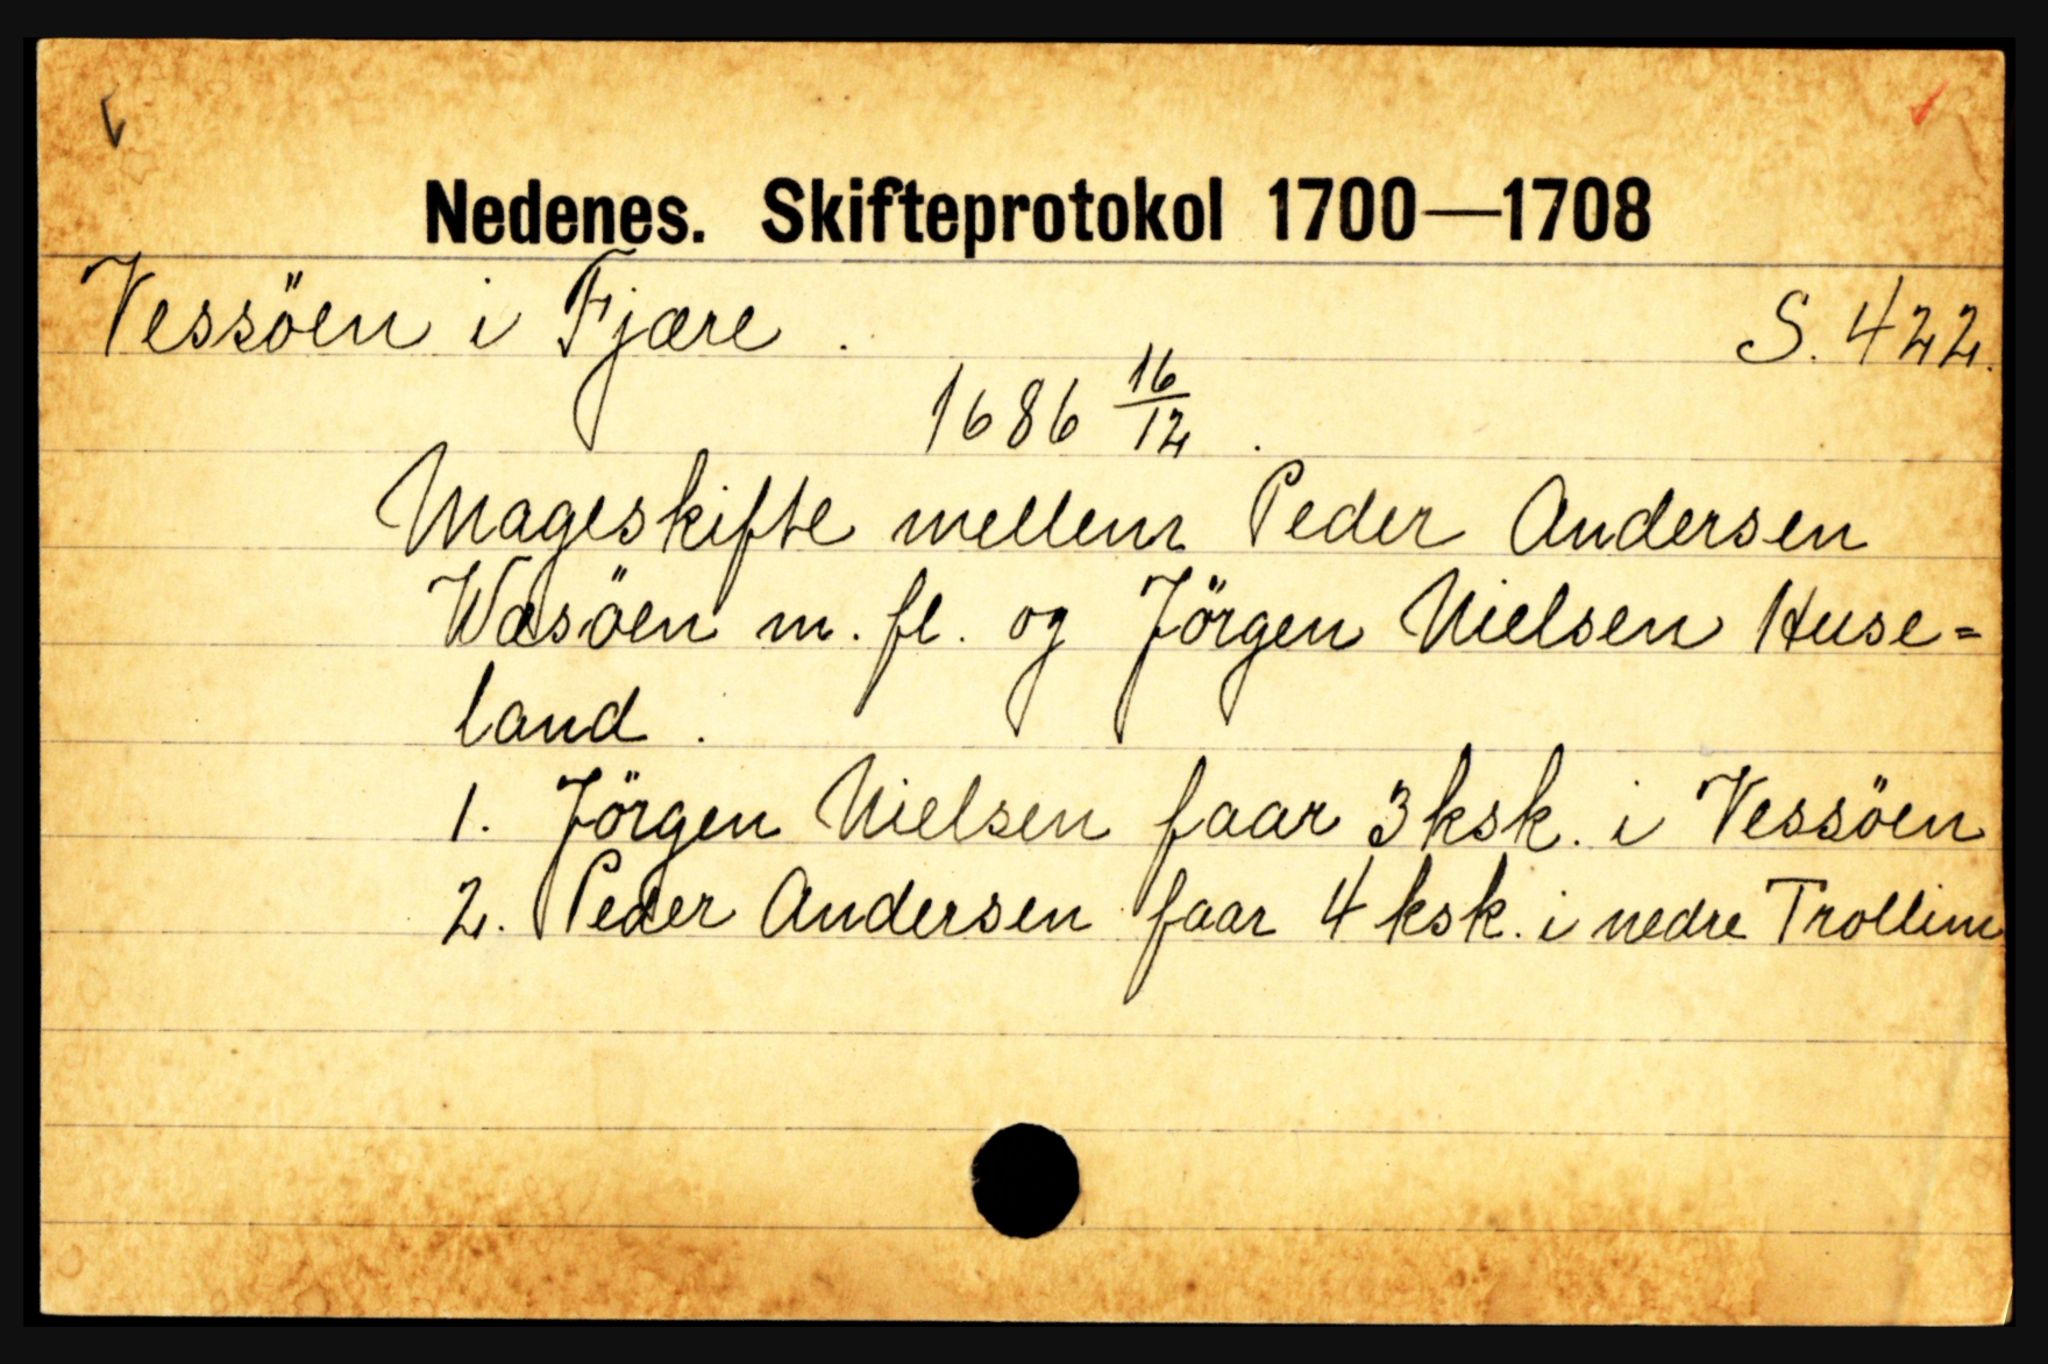 Nedenes. Skifteprotokol 1700—1708
Vessöen i Fjære . S. 422.
1686 16/12 .
Mageskifte mellem Peder Andersen
Wæsöen m. fl. og Jörgen Nielsen Huse=
land .
1. Jörgen Nielsen faar 3 ksk. i Vessöen
2. Peder Andersen faar 4 ksk. i nedre Trollim